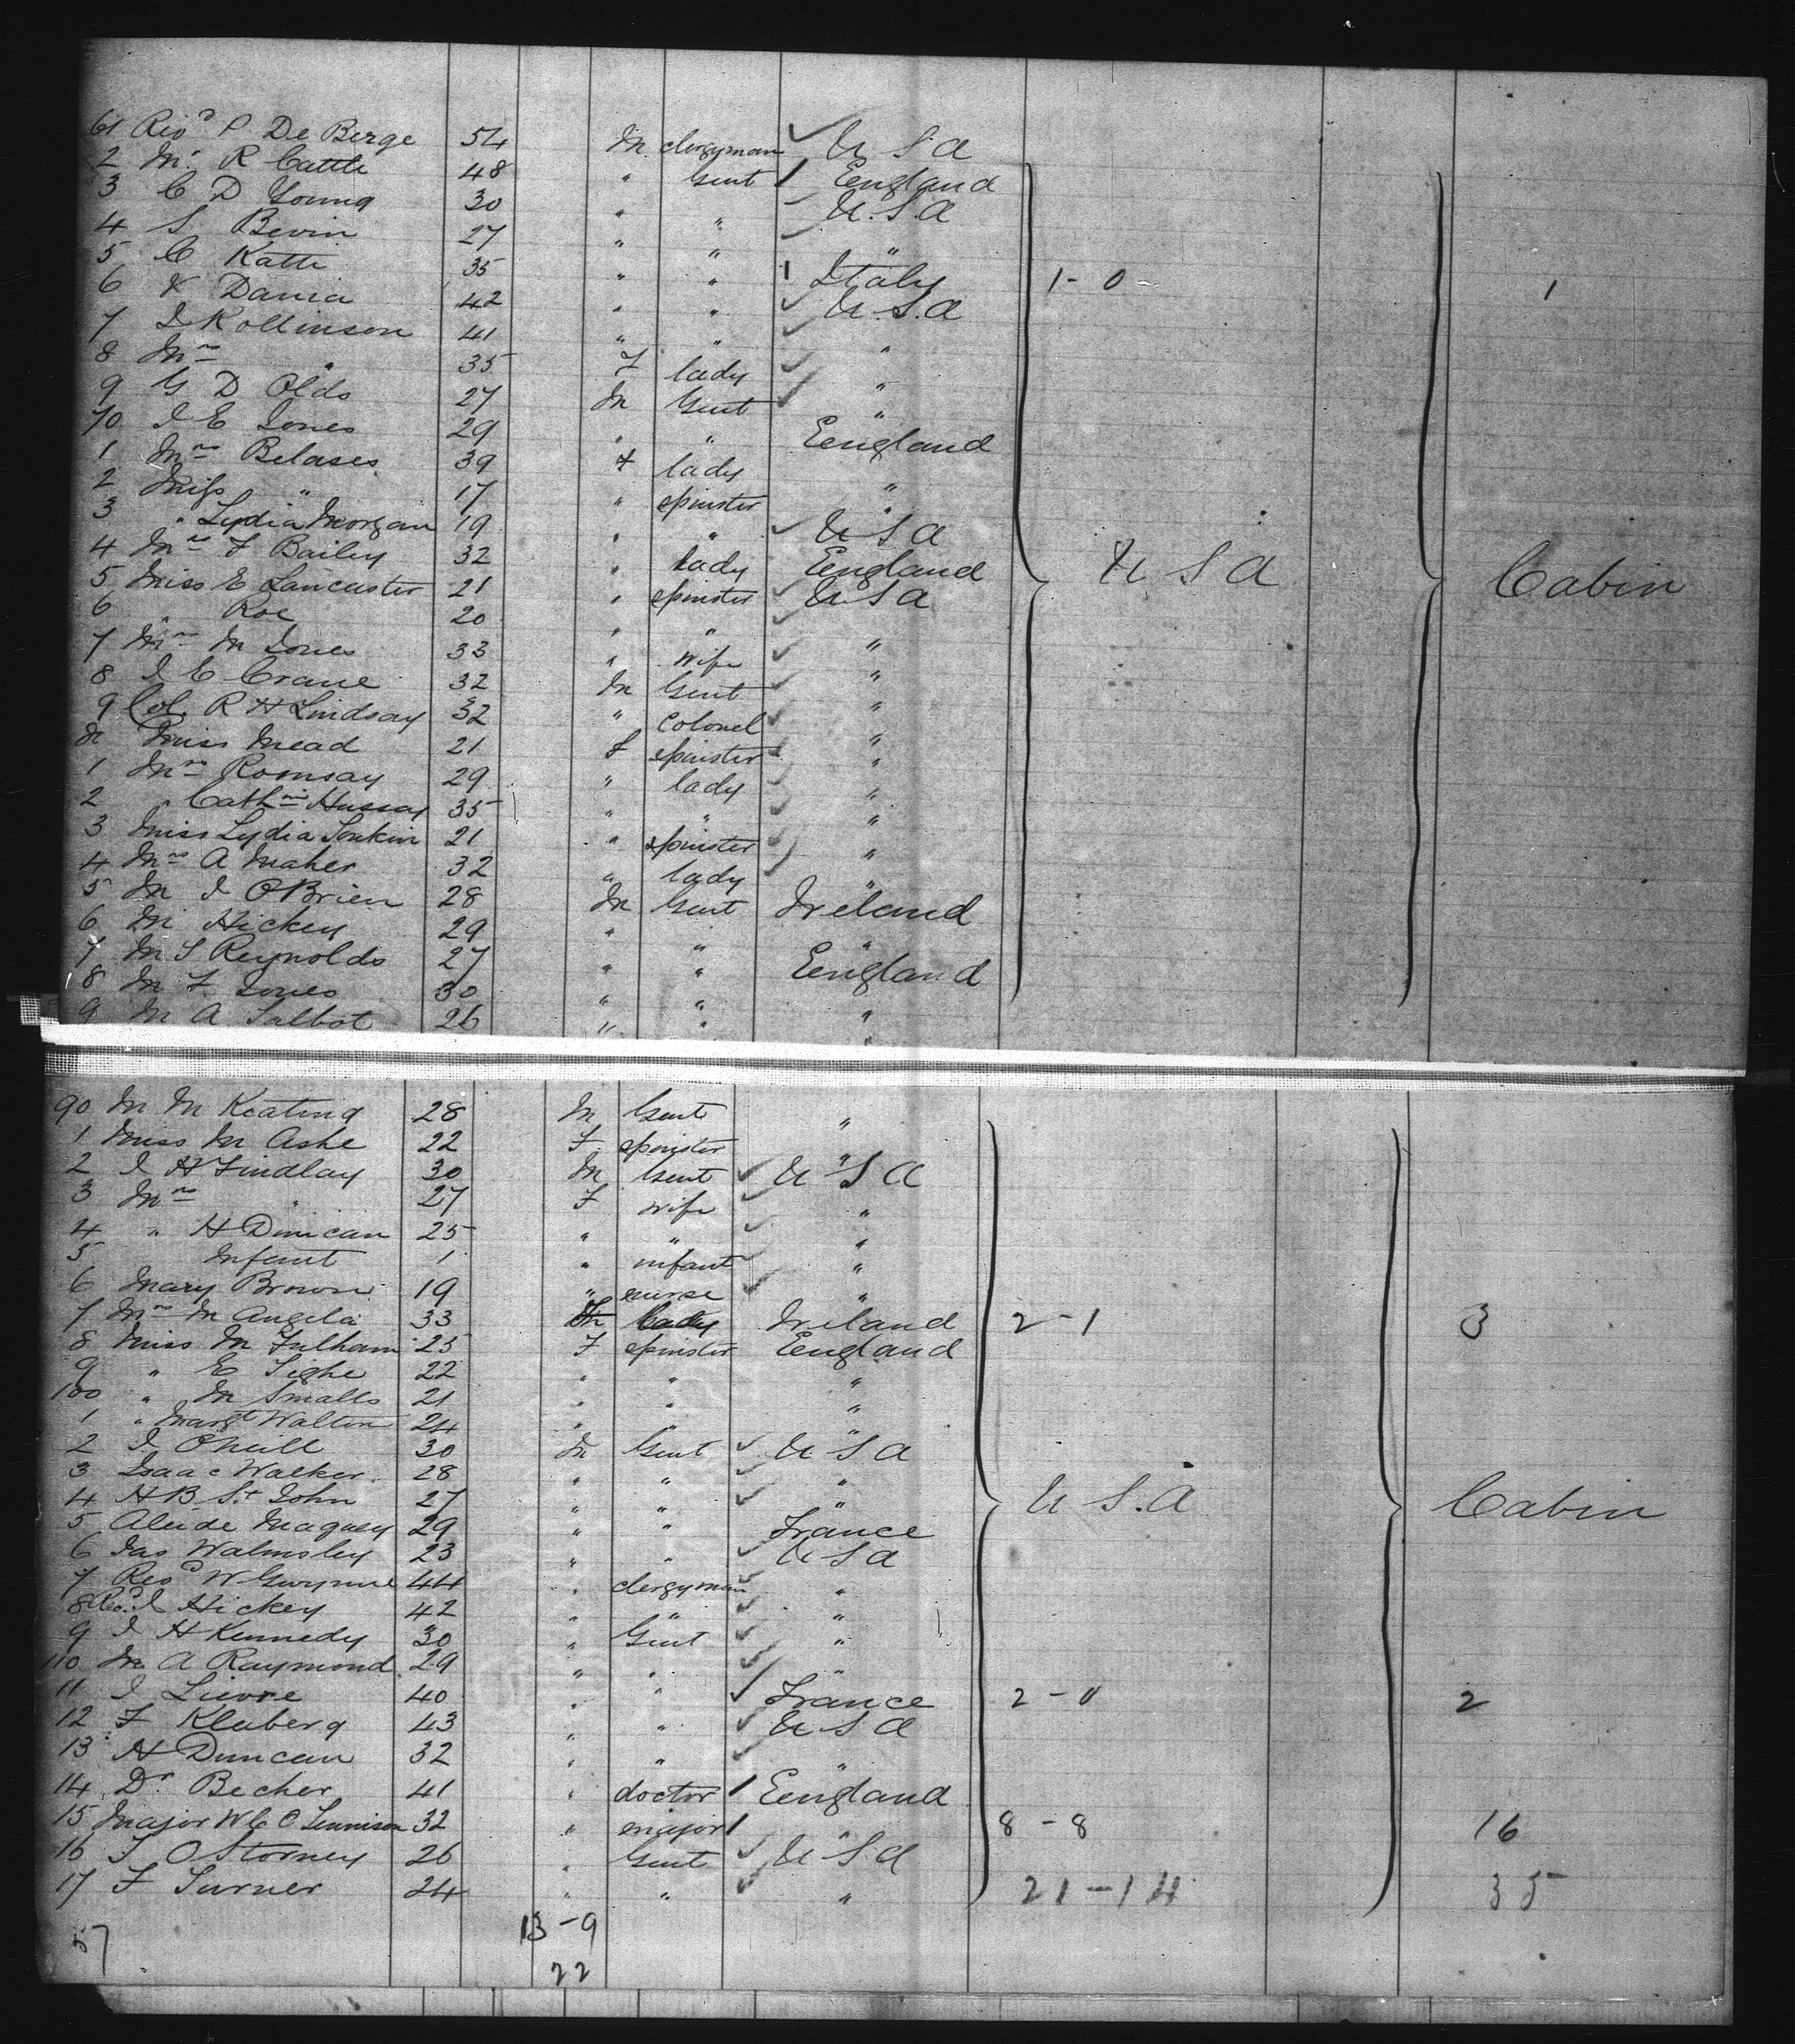 61 Revd P De Berge 54 M clergyman ✓ U S A
2 Mr R Cattle 48 " Gent 1 England
3 C D Young 30 " " U.S.A
4 S Bevin 27 " " "
5 C Katte 35 " " 1 Italy 1-0- 1
6 V Dania 42 " " ✓ U.S.A
7 J Rollinson 41 " " ✓ "
8 Mrs " 35 F lady ✓ "
9 G D Olds 27 M Gent ✓ "
70 J E Jones 29 " " England
1 Mrs Belases 39 F lady "
2 Miss " 17 " spinster "
3 " Lydia Morgan 19 " " ✓ U S A
4 Mrs F Bailey 32 " lady England
5 Miss E Lancaster 21 " spinster ✓ U S A U S A Cabin
6 " Roe 20 " " ✓ "
7 Mrs M Jones 33 " wife ✓ "
8 J E Crane 32 M Gent ✓ "
9 Col. R H Lindsay 32 " Colonel ✓ "
80 Miss Mead 21 F spinster ✓ "
1 Mrs Romsay 29 " lady ✓ "
2 " Cathne Hussay 35 " " ✓ "
3 Miss Lydia Jonkin 21 " spinster ✓ "
4 Mrs A Maher 32 " lady ✓ "
5 M J O'Brien 28 M Gent Ireland
6 M Hickey 29 " " "
7 M S Reynolds 27 " " England
8 M F Jones 30 " " "
9 M A Talbot 26 " " "
90 M M Keating 28 M Gent "
1 Miss M Ashe 22 F spinster "
2 J H Findlay 30 M Gent ✓ U S A
3 Mrs " 27 F wife ✓ "
4 " H Duncan 25 " " ✓ "
5 Infant 1 " infant ✓ "
6 Mary Brown 19 " nurse ✓ "
7 Mrs M Angela 33 lady Ireland 2-1 3
8 Miss M Fulham 25 F spinster England
9 " E Tighe 22 " " "
100 " M Smalls 21 " " "
1 " Margt Walton 24 " " "
2 J O'Neill 30 M Gent ✓ U S A
3 Isaac Walker 28 " " ✓ "
4 H B St John 27 " " ✓ " U S.A Cabin
5 Alcide Magney 29 " " France
6 Jas Walmsley 23 " " ✓ U S A
7 Revd W Gwynne 44 " clergyman ✓ "
8 Revd J Hickey 42 " " ✓ "
9 J H Kennedy 30 " Gent ✓ "
110 M A Raymond 29 " " ✓ "
11 J Lievre 40 " " ✓ France 2-0 2
12 F Kluberg 43 " " ✓ U S A
13 H Duncan 32 " " ✓ "
14 Dr Becher 41 " doctor 1 England
15 Major W C O Tennison 32 " major 1 " 8-8 16
16 J O Storney 26 " Gent ✓ U S A
17 F Turner 24 " " ✓ " 21-14 35
13-9
57
22